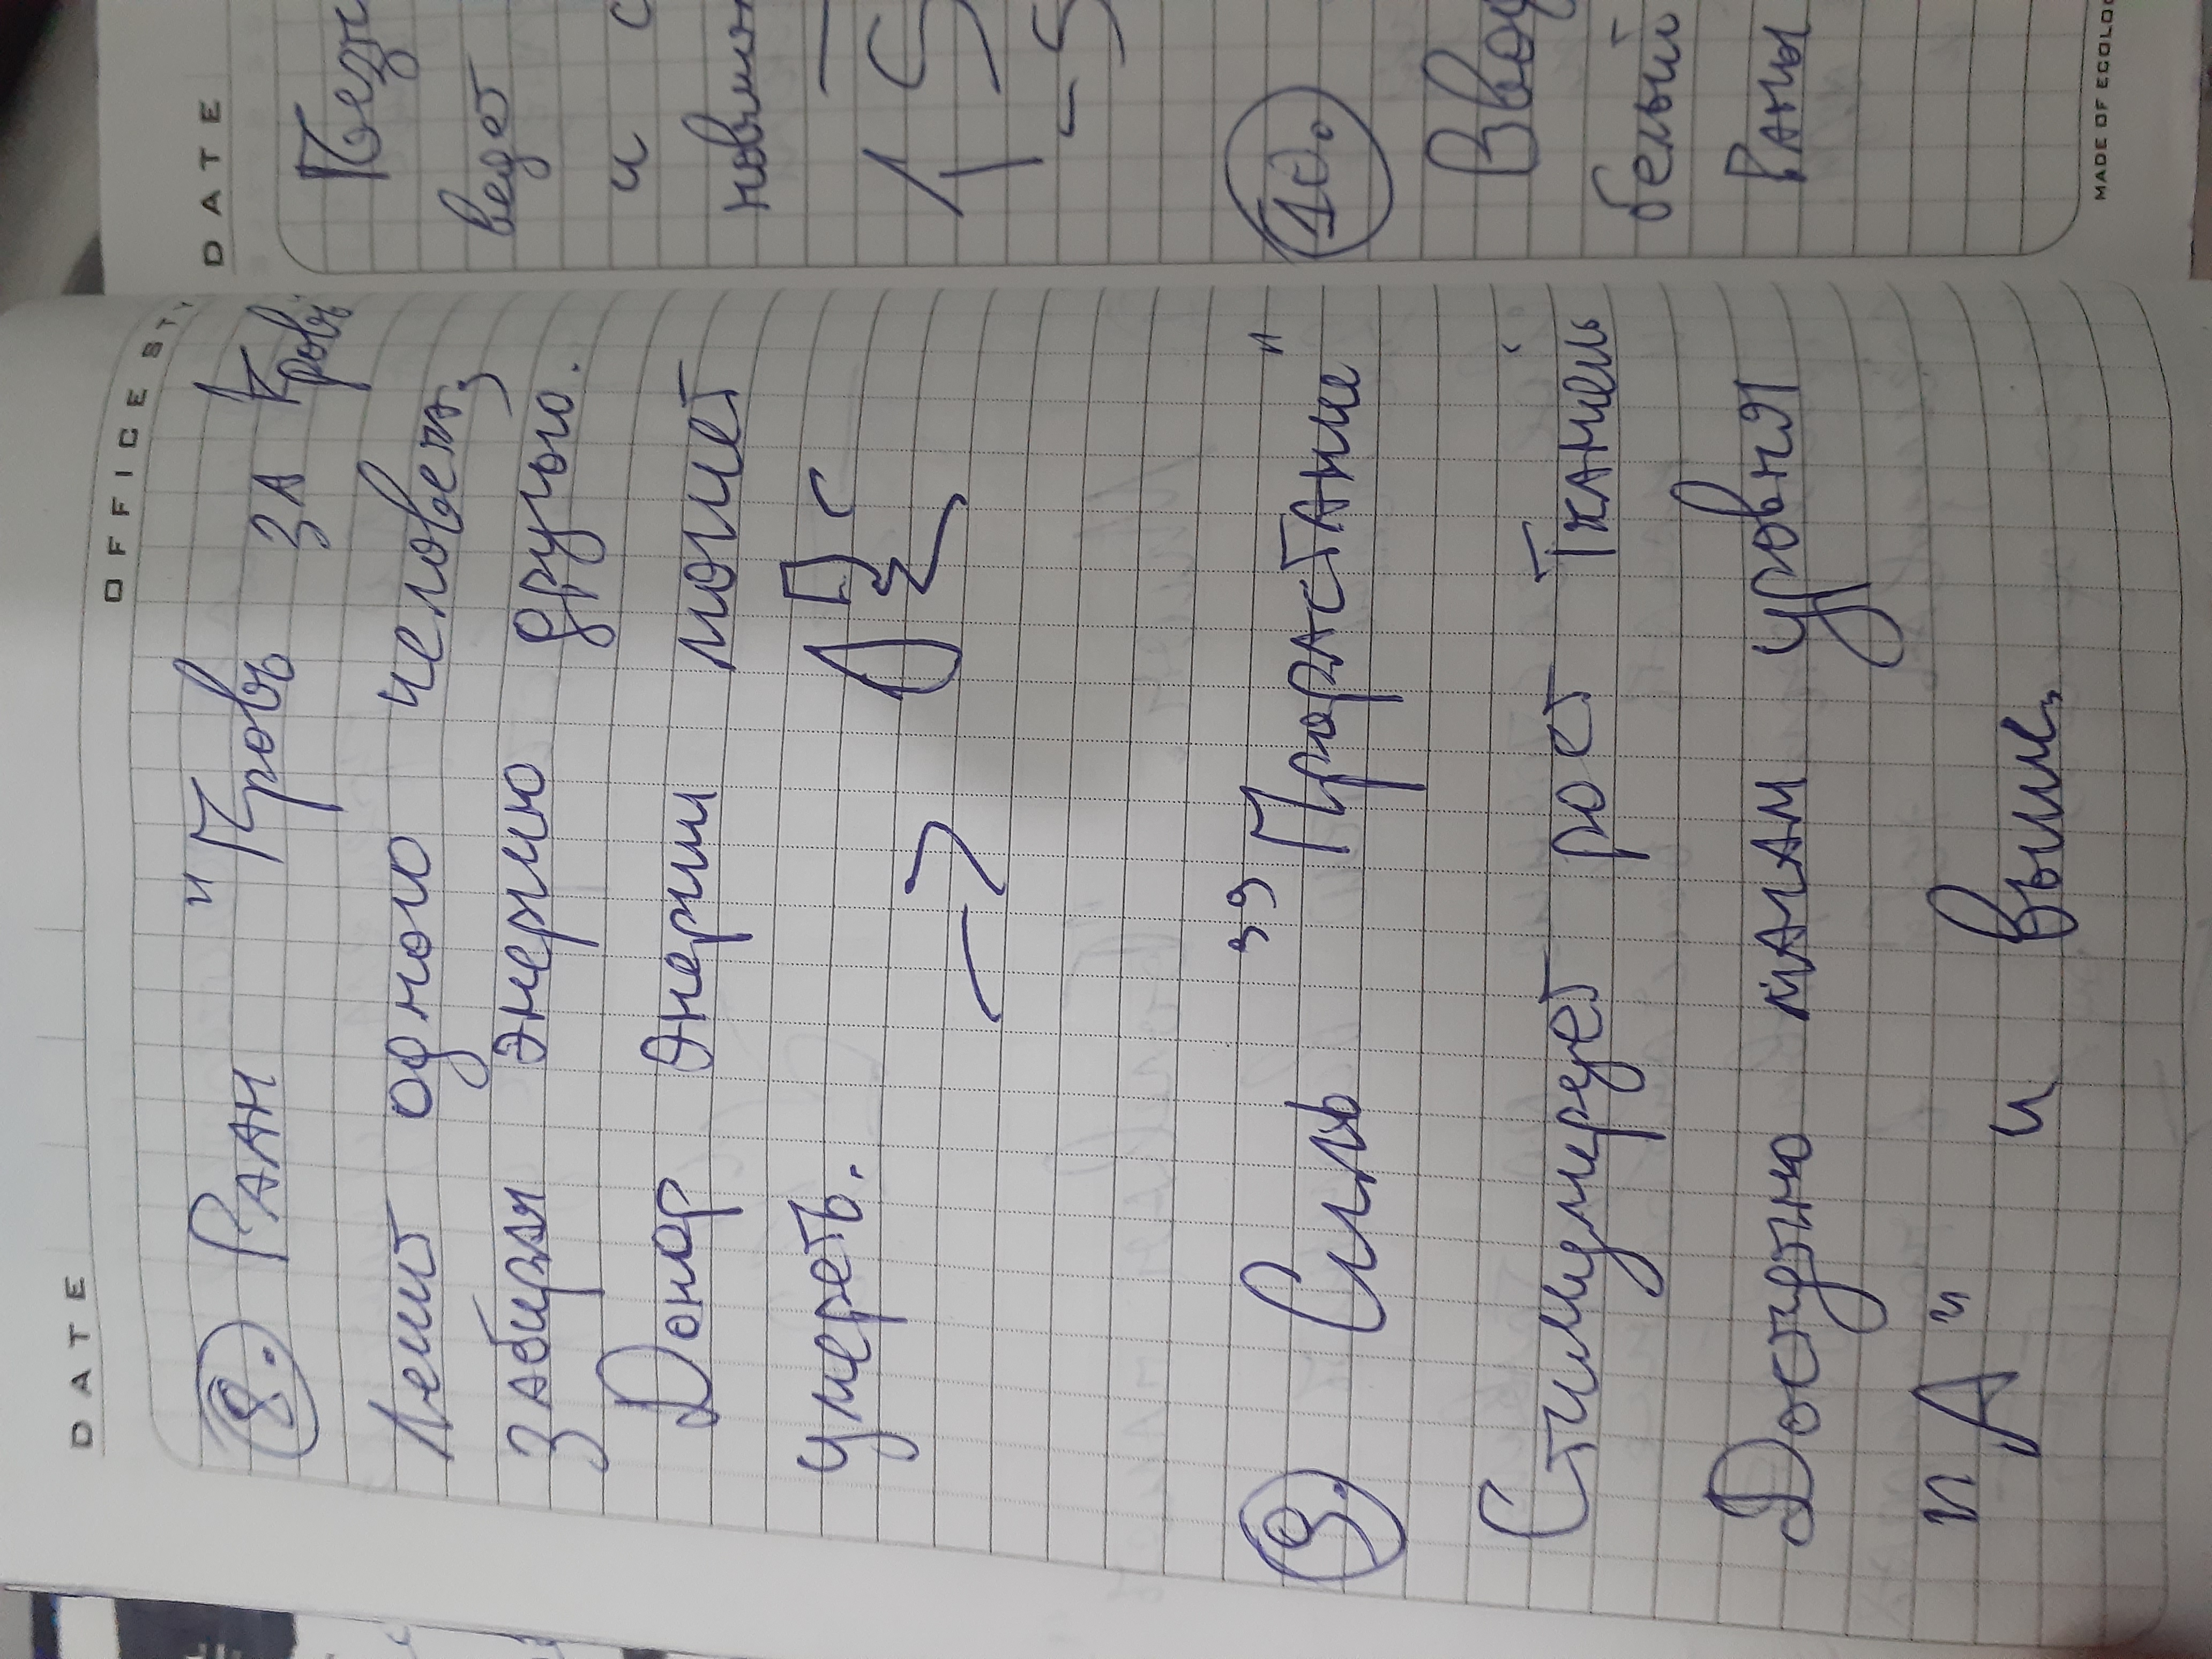 DATE
OFFICE ST
8. Раан "Кровь за Кровь"
Лечит одного человека,
забирая энергию другого.
Донор энергии может
умереть.
9. Силь "Прорастание"
Стимулирует рост тканей,
Доступно магам уровня
"А" и выше,
DATE
ведет
и с
10.
белый
Раны
MADE OF ECOLOG